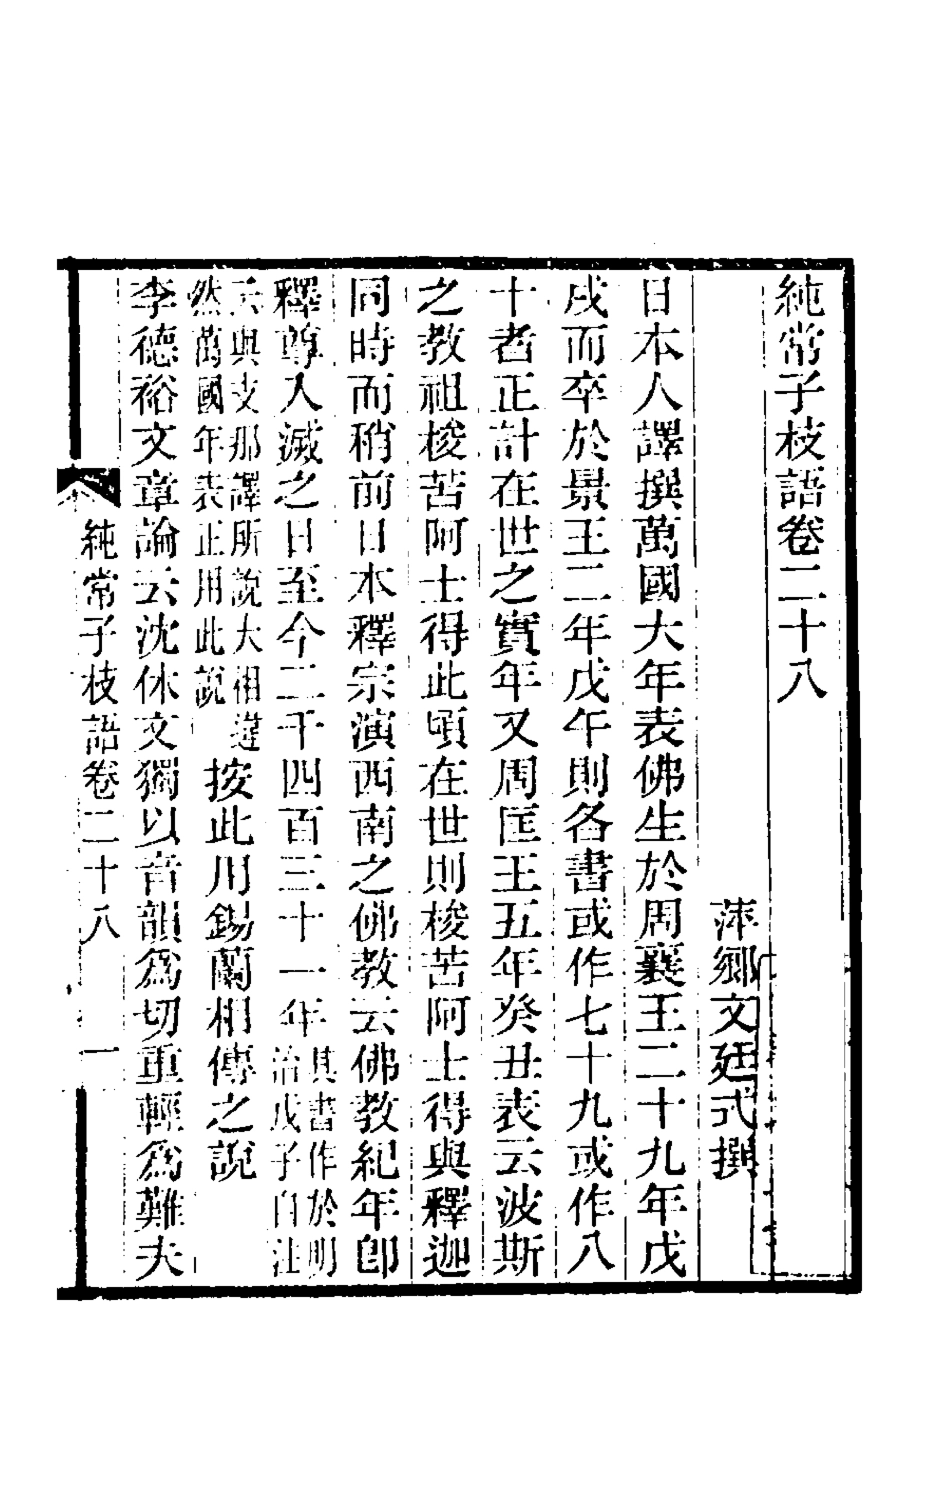 純常子枝語卷二十八
萍鄉文廷式撰
日本人譯撰萬國大年表佛生於周襄王二十九年戊
戌而卒於景王二年戊午則各書或作七十九或作八
十者正計在世之實年又周匡王五年癸丑表云波斯
之教祖梭苦阿士得此頃在世則梭苦阿士得與釋迦
同時而稍前日本釋宗演西南之佛教云佛教紀年卽
釋尊入滅之日至今二千四百三十一年其書作於明
治戊子自注
云與支那譯所說大相違
然萬國年表正用此說按此用錫蘭相傳之說
李德裕文章論云沈休文獨以音韻爲切重輕爲難夫
純常子枝語卷二十八 一